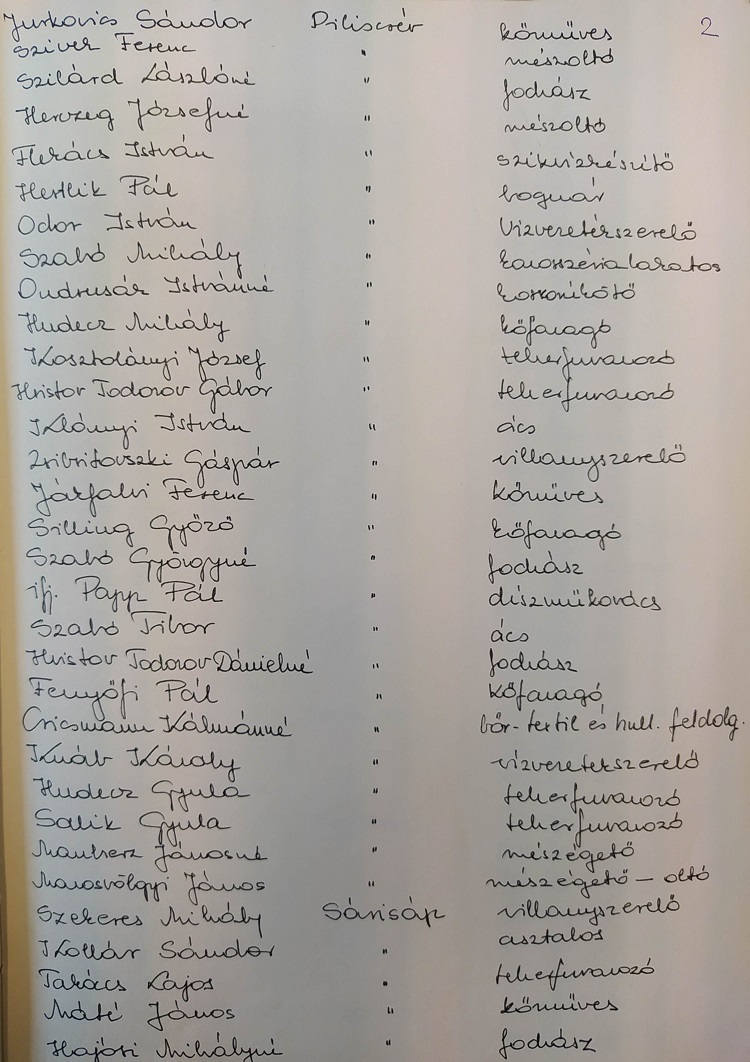 2
Jurkovics Sándor Piliscsév kőműves
Sziver Ferenc " mészoltó
Szilárd Lászlóné " fodrász
Herczeg Józsefné " mészoltó
Flekács István " szikvízkészítő
Hertlik Pál " bognár
Odor István " Vízvezetékszerelő
Szabó Mihály " karosszérialakatos
Ondrusár Istvánné " koszorúkötő
Hudecz Mihály " kőfaragó
Kosztolányi József " teherfuvarozó
Hristov Todorov Gábor " teherfuvarozó
Klányi István " ács
Gáspár " villanyszerelő
Járfalvi Ferenc " kőműves
Silling Győző " kőfaragó
Szabó Györgyné " fodrász
ifj. Papp Pál " díszműkovács
Szabó Tibor " ács
Hristov Todorov Dánielné " fodrász
Fenyőfi Pál " kőfaragó
Kálmánné " bőr- textil és hull. feldolg.
Knáb Károly " vízvezetékszerelő
Hudecz Gyula " teherfuvarozó
Salik Gyula " teherfuvarozó
Manherz Jánosné " mészégető
Marosvölgyi János " mészégető – oltó
Szekeres Mihály Sárisáp villanyszerelő
Kollár Sándor " asztalos
Takács Lajos " teherfuvarozó
Máté János " kőműves
Hajósi Mihályné " fodrász